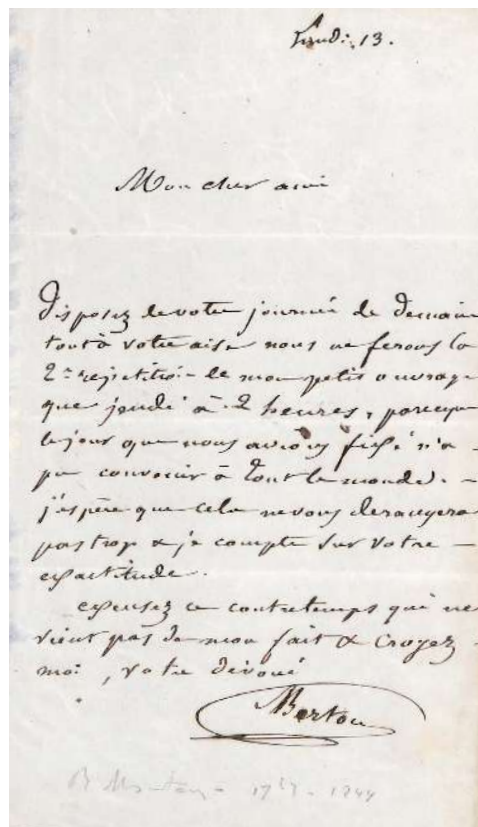 Lundi 13.
Mon cher ami
Disposez de votre journée de demain
tout à votre aise nous ne ferons la
2me répétition de mon petit ouvrage
que jeudi à 2 heures, parceque
le jour que nous avions fixé n'a
pu convenir à tout le monde. -
j'espère que cela ne vous derangera
pas trop & je compte sur votre -
exactitude.
excusez ce contretemps qui ne
vient pas de mon fait & croyez
moi, votre dévoué
Berton